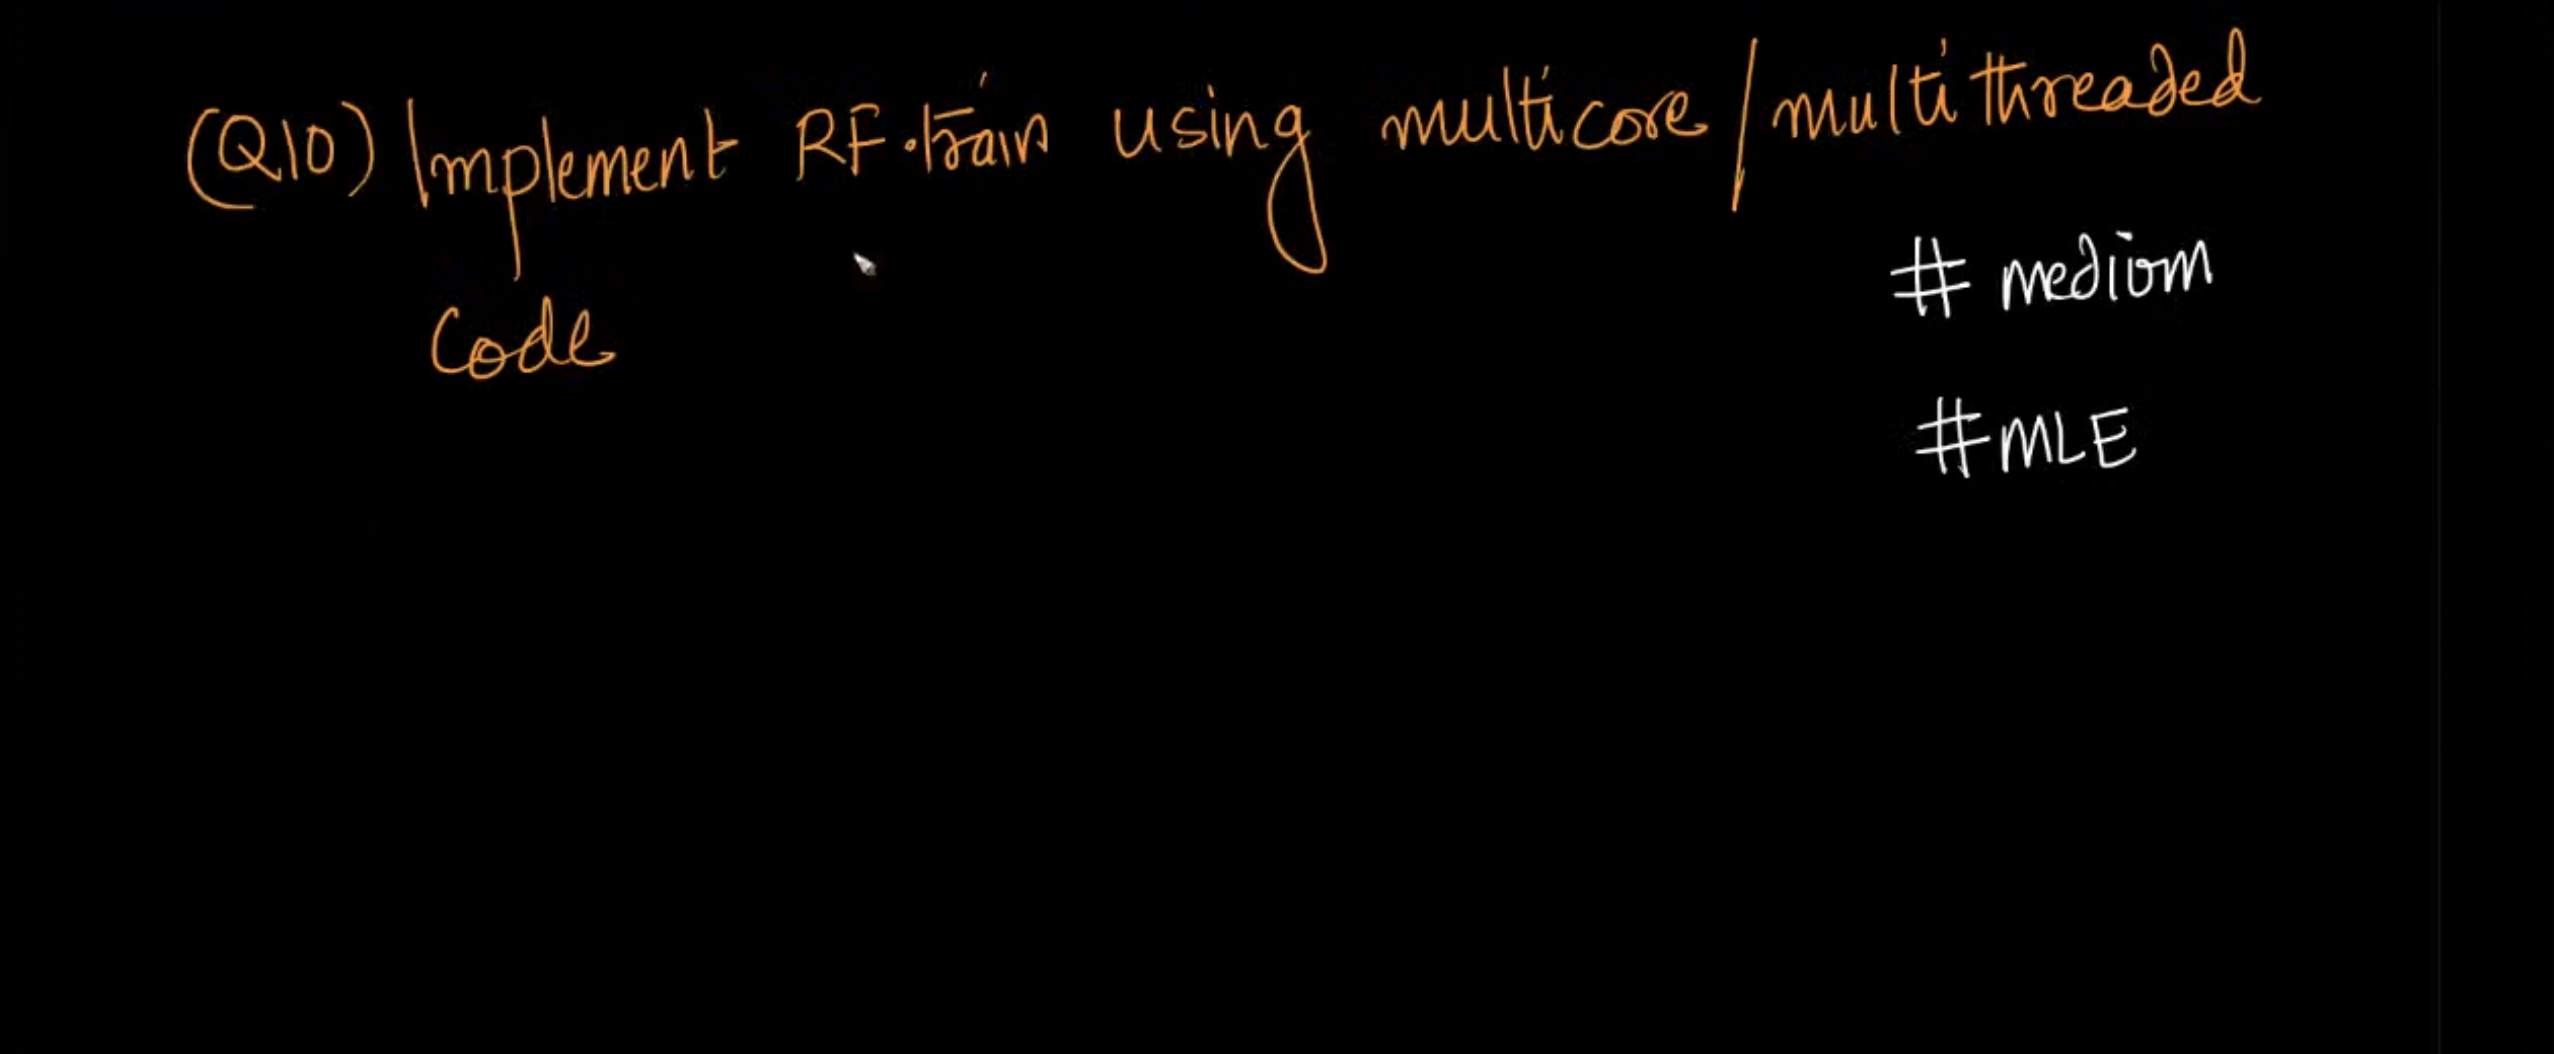 (Q10) Implement RF.train using multicore / multithreaded
# medium
Code
# MLE